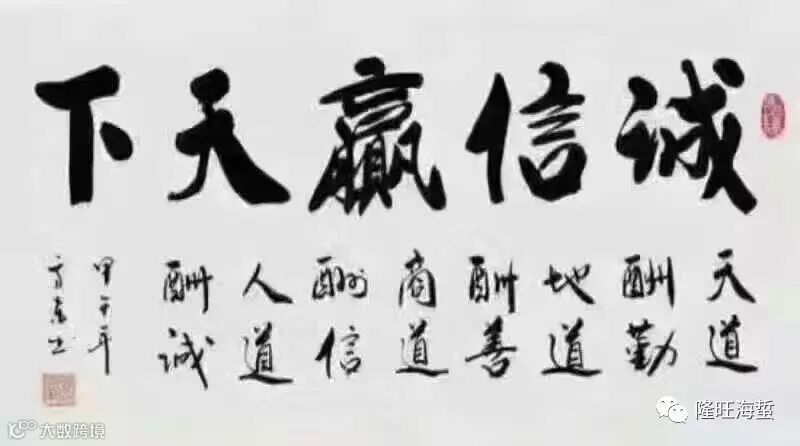 诚信赢天下
天道
酬勤
地道
酬善
商道
酬信
人道
酬诚
甲午年
书
大数跨境
隆旺海蜇